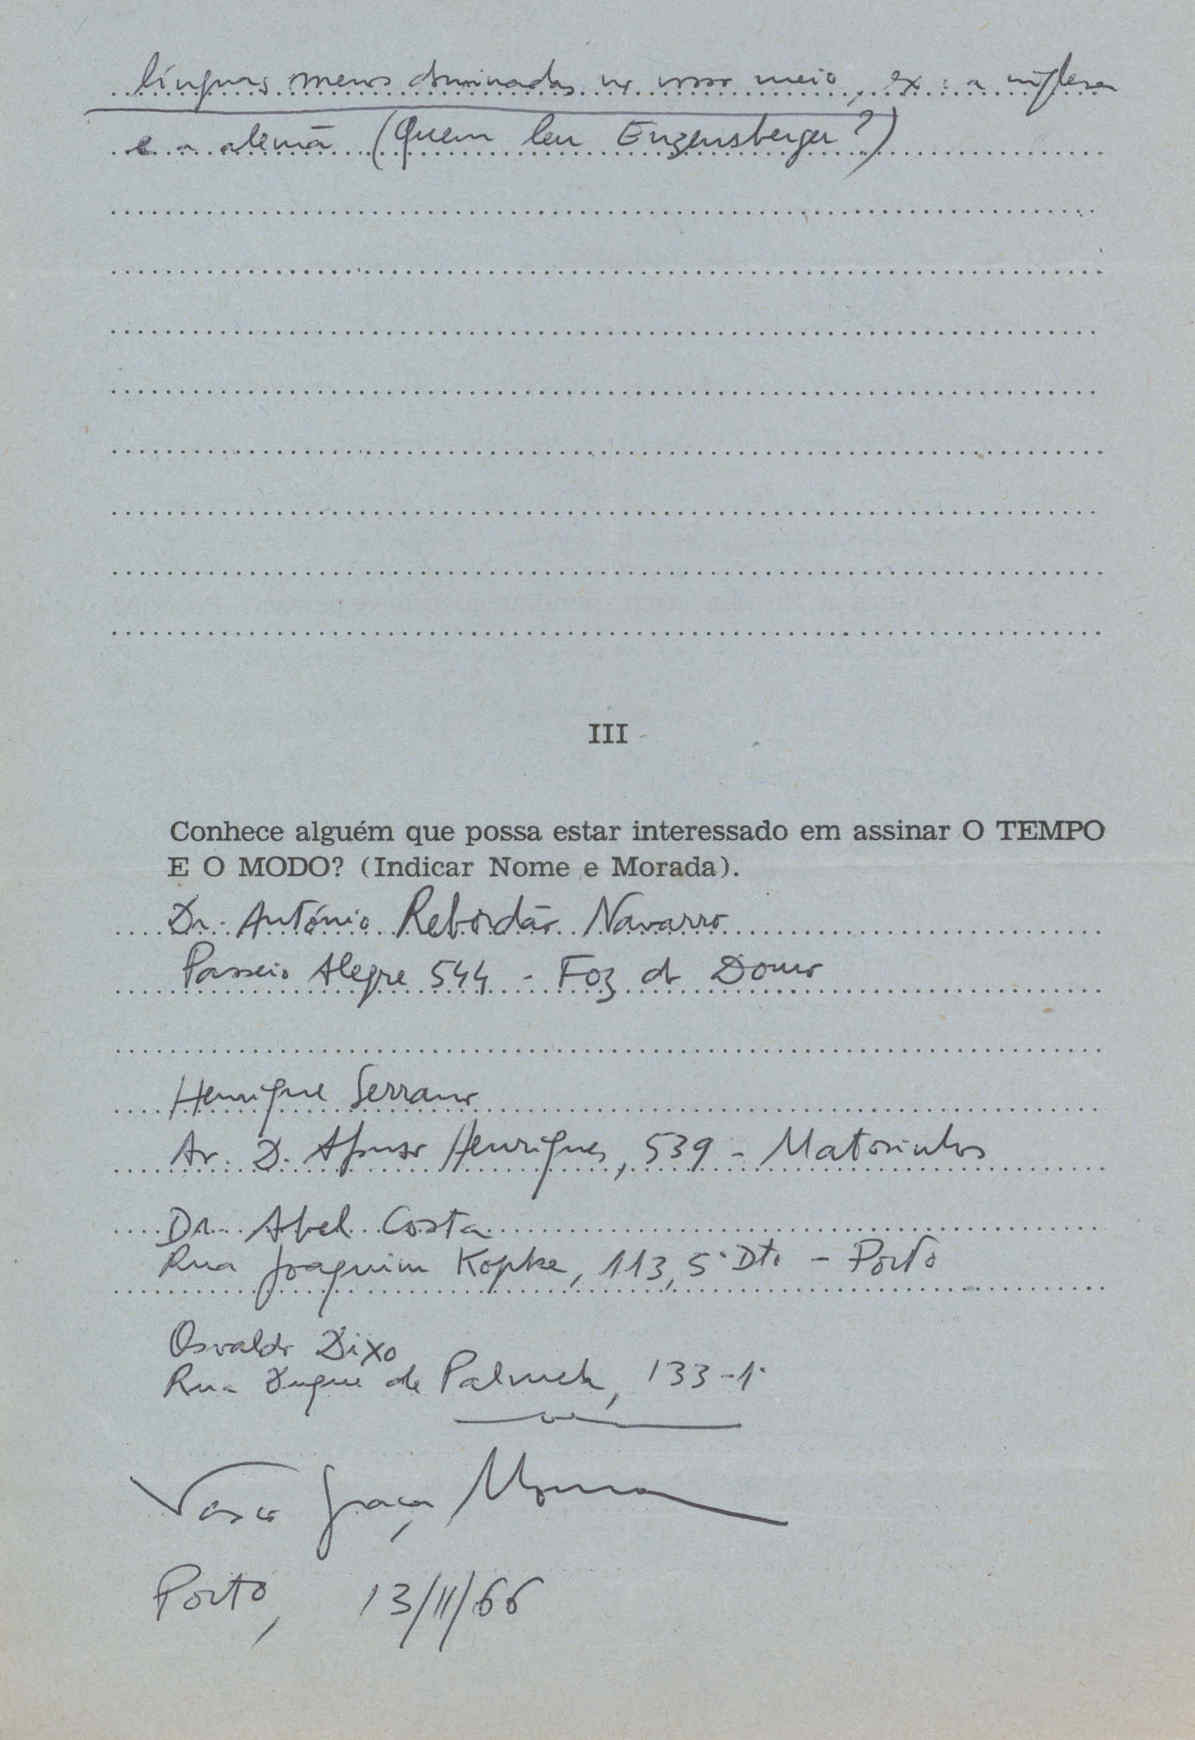 línguas menos dominadas no nosso meio, ex: a inglesa
e a alemã (Quem leu Enzensberger?)
III
Conhece alguém que possa estar interessado em assinar O TEMPO
E O MODO? (Indicar Nome e Morada).
Dr. António Rebordão Navarro
Passeio Alegre 544 - Foz do Douro
Henrique Serrano
Av. D. Afonso Henriques, 539 - Matosinhos
Dr. Abel Costa
Rua Joaquim Kopke, 113, 5º Dto - Porto
Osvaldo Dixo
Rua Duque de Palmela, 133-1º
Vasco Graça Moura
Porto, 13/II/66